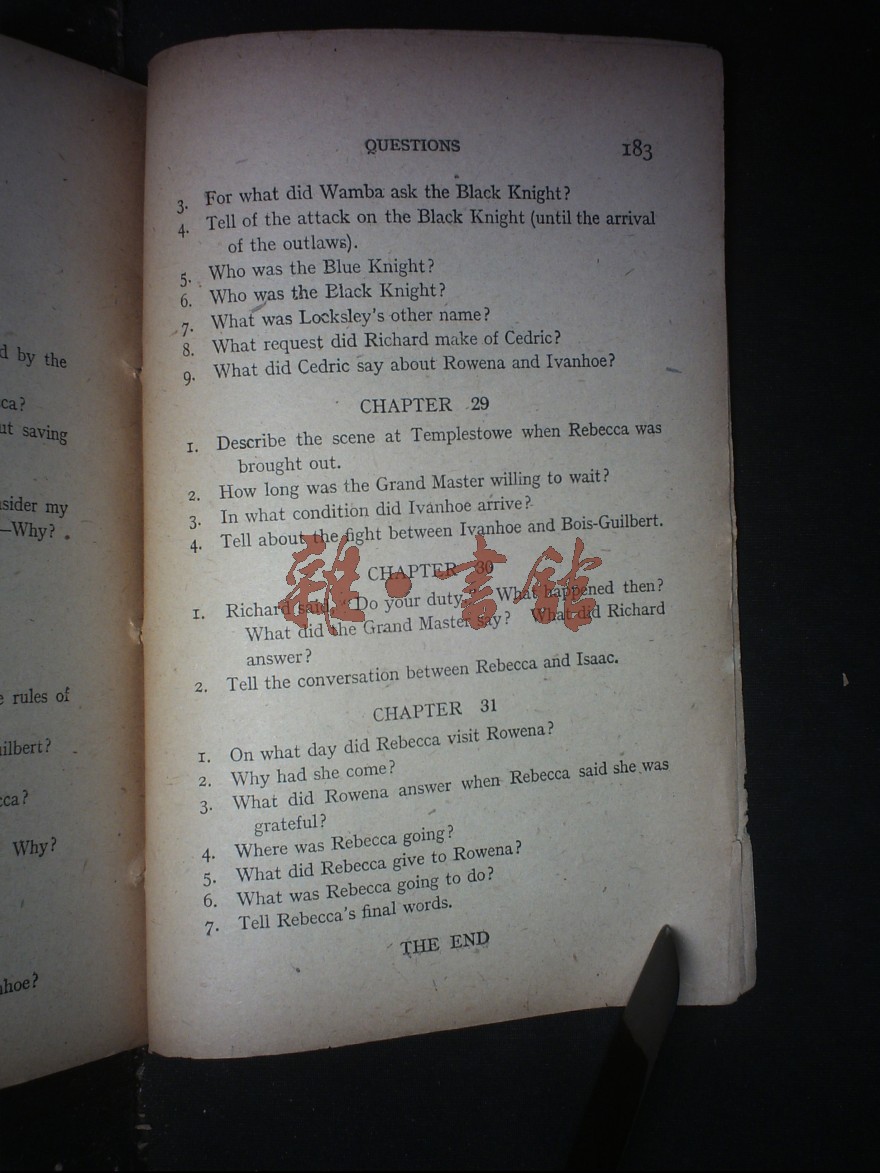 QUESTIONS 183
3. For what did Wamba ask the Black Knight?
4. Tell of the attack on the Black Knight (until the arrival
of the outlaws).
5. Who was the Blue Knight?
6. Who was the Black Knight?
7. What was Locksley's other name?
8. What request did Richard make of Cedric?
9. What did Cedric say about Rowena and Ivanhoe?
CHAPTER 29
1. Describe the scene at Templestowe when Rebecca was
brought out.
2. How long was the Grand Master willing to wait?
3. In what condition did Ivanhoe arrive?
4. Tell about the fight between Ivanhoe and Bois-Guilbert.
CHAPTER 30
1. Richard said, "Do your duty." What happened then?
What did the Grand Master say? What did Richard
answer?
2. Tell the conversation between Rebecca and Isaac.
CHAPTER 31
1. On what day did Rebecca visit Rowena?
2. Why had she come?
3. What did Rowena answer when Rebecca said she was
grateful?
4. Where was Rebecca going?
5. What did Rebecca give to Rowena?
6. What was Rebecca going to do?
7. Tell Rebecca's final words.
THE END
雜·書館
by the
but saving
my
—Why?
rules of
Why?